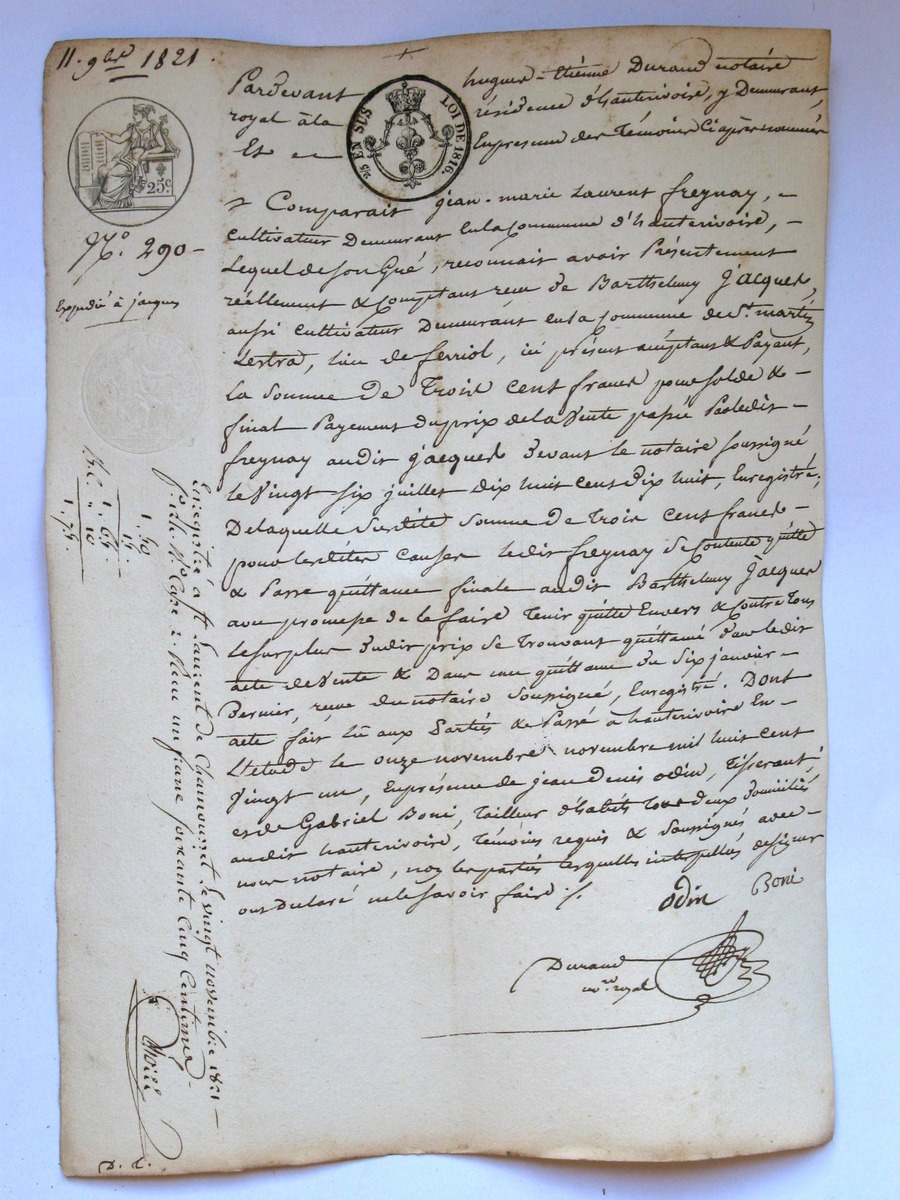 11. 9bre 1821.
Pardevant hugues-Etienne Durand notaire
royal à la résidence d'hauterivoire, y Demeurant,
Et en la présence des témoins Ci après nommés
25 EN SUS LOI DE 1816.
25c.
N.° 290 -
Expédié à jacques
Comparait jean-marie Laurent freynay, -
Cultivateur Demeurant En la Commune d'hauterivoire, -
Lequel de Son Gré, reconnait avoir Présentement
réellement & Comptant reçu de Barthelemy Jacques,
aussi Cultivateur Demeurant en la commune de St. martin
Lestra, lieu de ferriol, ici présent acceptant & Payant,
la Somme De Trois Cent francs pour Solde & -
final Payement du prix de la Vente passée Par ledit -
freynay audit jacques Devant le notaire soussigné
le Vingt Six juillet Dix huit Cent Dix huit, Enregistré;
De laquelle Susdite Somme de Trois Cent francs -
pour lesdites Causes ledit freynay Se Contente quitte
& Passe quittance finale audit Barthelemy Jacques
avec promesse de le faire Tenir quitte Envers & Contre Tous
le surplus dudit prix Se Trouvant quittancé Dans ledit
acte de Vente & Dans une quittance du Six janvier -
Dernier, reçue du notaire Soussigné, Enregistré. Dont
acte fait lu aux Parties & Passé à hauterivoire En -
L'étude le onze novembre novembre mil huit Cent
Vingt un, En présence de jean Denis odin, Tisserant,
et de Gabriel Boni, Tailleur d'habits Tous deux Domiciliés
audit hauterivoire, Témoins requis & Soussignés avec -
nous notaire, non les parties lesquelles interpellées de signer
ont Déclaré ne le Savoir faire ./.
odin Boni
Durand
no.re royal
Enregistré à St Laurent de Chamousset le vingt novembre 1821 -
Case 2. Reçu un franc soixante Cinq Centimes -
1. 50
15
1. 65.
10
1. 75.
D. C.